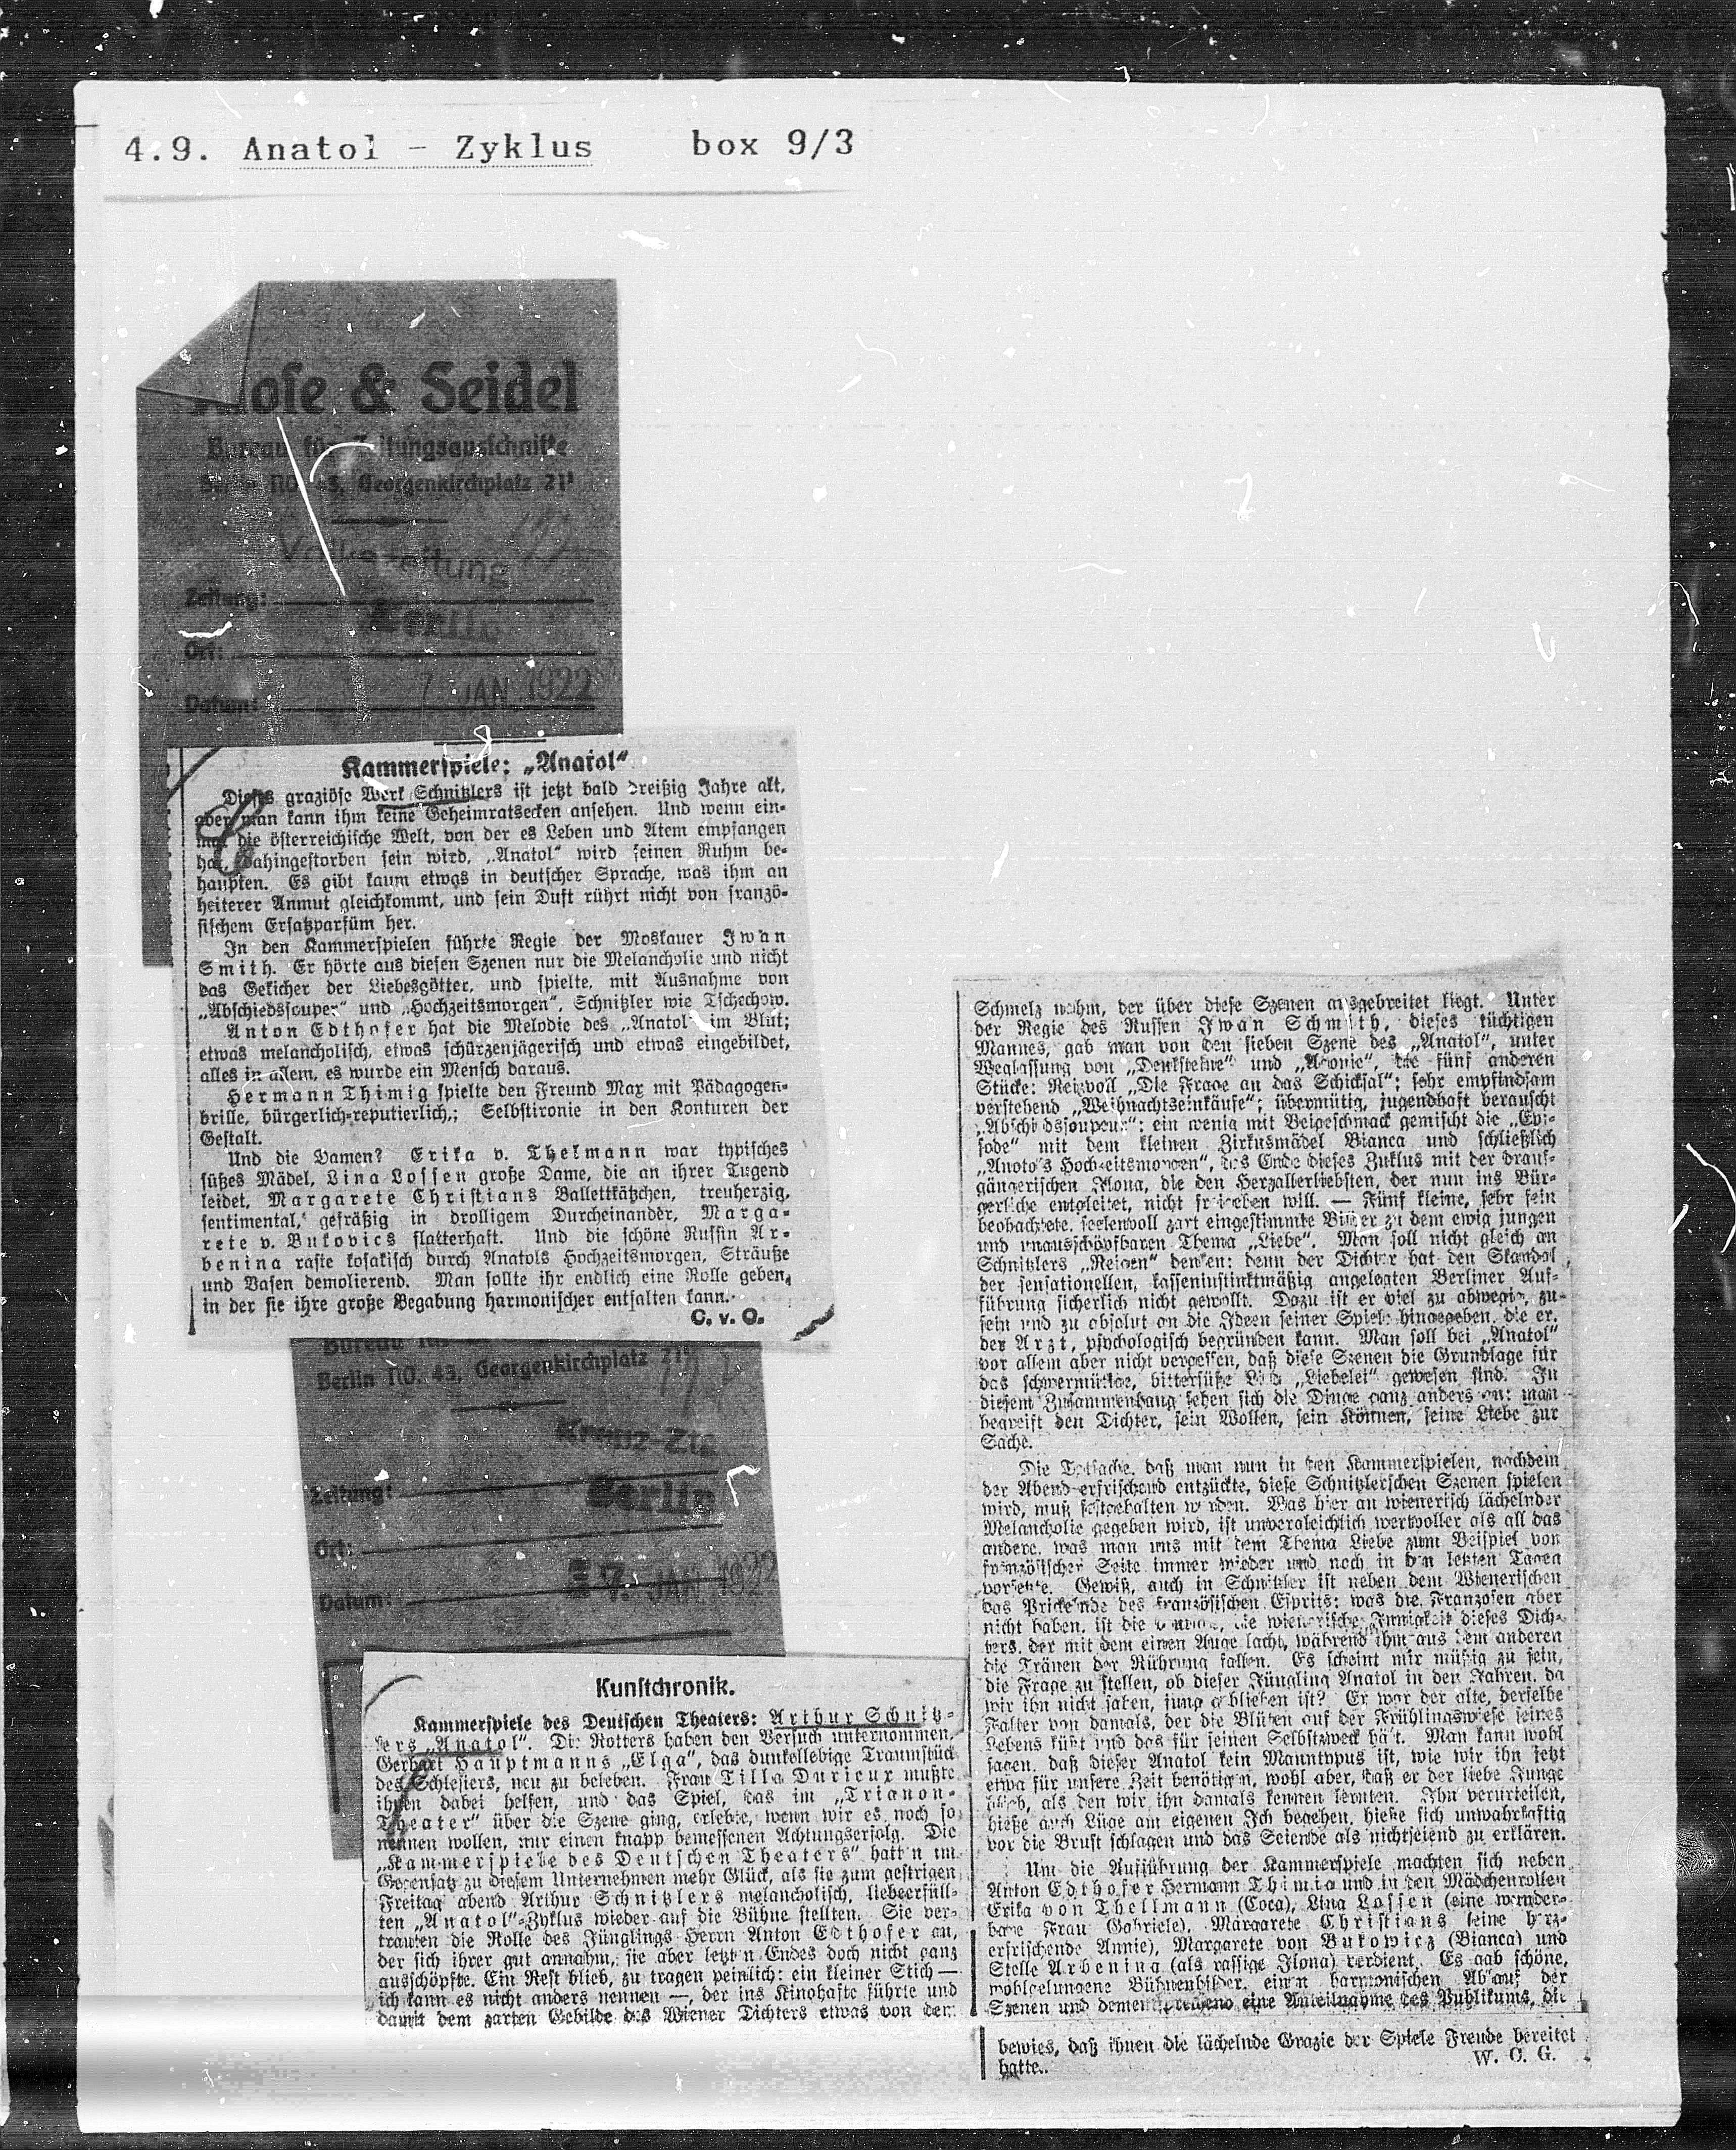 4.9. Anatol - Zyklus box 9/3
& Seidel
Bureau für Zeitungsausschnitte
Berlin NO. 43, Georgenkirchplatz 21¹
Volkszeitung
Zeitung:
Berlin
Ort:
Datum: 7. JAN. 1922
Kammerspiele: „Anatol“
Dieses graziöse Werk Schnitzlers ist jetzt bald dreißig Jahre alt,
aber man kann ihm keine Geheimratsecken ansehen. Und wenn ein-
mal die österreichische Welt, von der es Leben und Atem empfangen
hat, dahingestorben sein wird, „Anatol“ wird seinen Ruhm be-
haupten. Es gibt kaum etwas in deutscher Sprache, was ihm an
heiterer Anmut gleichkommt, und sein Duft rührt nicht von franzö-
sischem Ersatzparfüm her.
In den Kammerspielen führte Regie der Moskauer Iwan
Smith. Er hörte aus diesen Szenen nur die Melancholie und nicht
das Gekicher der Liebesgötter, und spielte, mit Ausnahme von
„Abschiedssouper“ und „Hochzeitsmorgen“, Schnitzler wie Tschechow.
Anton Edthofer hat die Melodie des „Anatol“ im Blut;
etwas melancholisch, etwas schürzenjägerisch und etwas eingebildet,
alles in allem, es wurde ein Mensch daraus.
Hermann Thimig spielte den Freund Max mit Pädagogen-
brille, bürgerlich-reputierlich,; Selbstironie in den Konturen der
Gestalt.
Und die Damen? Erika v. Thelmann war typisches
süßes Mädel, Lina Lossen große Dame, die an ihrer Tugend
leidet, Margarete Christians Ballettkätzchen, treuherzig,
sentimental, gefräßig in drolligem Durcheinander, Marga-
rete v. Bukovics flatterhaft. Und die schöne Russin Ar-
benina raste kosakisch durch Anatols Hochzeitsmorgen, Sträuße
und Vasen demolierend. Man sollte ihr endlich eine Rolle geben,
in der sie ihre große Begabung harmonischer entfalten kann.
C. v. O.
Bureau für
Berlin NO. 43, Georgenkirchplatz 21¹
Kreuz-Ztg
Zeitung:
Berlin
Ort:
Datum: 7. JAN. 1922
Kunstchronik.
Kammerspiele des Deutschen Theaters: Arthur Schnitz-
lers „Anatol“. Die Rotters haben den Versuch unternommen,
Gerhart Hauptmanns „Elga“, das dunkellebige Traumstück
des Schlesiers, neu zu beleben. Frau Tilla Durieux mußte
ihnen dabei helfen, und das Spiel, das im „Trianon-
Theater“ über die Szene ging, erlebte, wenn wir es noch so
nennen wollen, nur einen knapp bemessenen Achtungserfolg. Die
„Kammerspiele des Deutschen Theaters“ hatten im
Gegensatz zu diesem Unternehmen mehr Glück, als sie zum gestrigen
Freitag abend Arthur Schnitzlers melancholisch, liebeerfüll-
ten „Anatol“-Zyklus wieder auf die Bühne stellten. Sie ver-
trauten die Rolle des Jünglings Herrn Anton Edthofer an,
der sich ihrer gut annahm, sie aber letzten Endes doch nicht ganz
ausschöpfte. Ein Rest blieb, zu tragen peinlich: ein kleiner Stich —
ich kann es nicht anders nennen —, der ins Kinohafte führte und
damit dem zarten Gebilde des Wiener Dichters etwas von dem
Schmelz nahm, der über diese Szenen ausgebreitet liegt. Unter
der Regie des Russen Iwan Schmith, dieses tüchtigen
Mannes, gab man von den sieben Szene des „Anatol“, unter
Weglassung von „Denksteine“ und „Agonie“, die fünf anderen
Stücke: Reizvoll „Die Frage an das Schicksal“; sehr empfindsam
verstehend „Weihnachtseinkäufe“; übermütig, jugendhaft berauscht
„Abschiedssouper“; ein wenig mit Beigeschmack gemischt die „Epi-
sode“ mit dem kleinen Zirkusmädel Bianca und schließlich
„Anatols Hochzeitsmorgen“, das Ende dieses Zyklus mit der drauf-
gängerischen Ilona, die den Herzallerliebsten, der nun ins Bür-
gerliche entgleitet, nicht freigeben will. — Fünf kleine, sehr fein
beobachtete, seelenvoll zart eingestimmte Bilder zu dem ewig jungen
und unausschöpfbaren Thema „Liebe“. Man soll nicht gleich an
Schnitzlers „Reigen“ denken; denn der Dichter hat den Skandal
der sensationellen, kasseninstinktmäßig angelegten Berliner Auf-
führung sicherlich nicht gewollt. Dazu ist er viel zu abwegig, zu
fein und zu absolut an die Ideen seiner Spiele hingegeben, die er,
der Arzt, psychologisch begründen kann. Man soll bei „Anatol“
vor allem aber nicht vergessen, daß diese Szenen die Grundlage für
das schwermütige, bittersüße „Liebelei“ gewesen sind. In
diesem Zusammenhang sehen sich die Dinge ganz anders an: man
begreift den Dichter, sein Wollen, sein Können, seine Liebe zur
Sache.
Die Tatsache, daß man nun in den Kammerspielen, nachdem
der Abend erfrischend entzückte, diese Schnitzlerschen Szenen spielen
wird, muß festgehalten werden. Was hier an wienerisch lächelnder
Melancholie gegeben wird, ist unvergleichlich wertvoller als all das
andere, was man uns mit dem Thema Liebe zum Beispiel von
französischer Seite immer wieder und noch in den letzten Tagen
vorsetzte. Gewiß, auch in Schnitzler ist neben dem Wienerischen
das Prickelnde des französischen Esprits; was die Franzosen aber
nicht haben, ist die die wienerische Innigkeit dieses Dich-
ters, der mit dem einen Auge lacht, während ihm aus dem anderen
die Tränen der Rührung fallen. Es scheint mir müßig zu sein,
die Frage zu stellen, ob dieser Jüngling Anatol in den Jahren, da
wir ihn nicht sahen, jung geblieben ist? Er war der alte, derselbe
Falter von damals, der die Blüten auf der Frühlingswiese seines
Lebens küßt und das für seinen Selbstzweck hält. Man kann wohl
sagen, daß dieser Anatol kein Manntypus ist, wie wir ihn jetzt
etwa für unsere Zeit benötigen, wohl aber, daß er der liebe Junge
blieb, als den wir ihn damals kennen lernten. Ihn verurteilen,
hieße auch Lüge am eigenen Ich begehen, hieße sich unwahrhaftig
vor die Brust schlagen und das Seiende als nichtseiend zu erklären.
Um die Aufführung der Kammerspiele machten sich neben
Anton Edthofer Hermann Thimig und in den Mädchenrollen
Erika von Thellmann (Cora), Lina Lossen (eine wunder-
bare Frau Gabriele), Margarete Christians (eine herz-
erfrischende Annie), Margarete von Bukowicz (Bianca) und
Stella Arbenina (als rassige Ilona) verdient. Es gab schöne,
wohlgelungene Bühnenbilder, einen harmonischen Ablauf der
Szenen und dementsprechend eine Anteilnahme des Publikums, die
bewies, daß ihnen die lächelnde Grazie der Spiele Freude bereitet
hatte.
W. C. G.